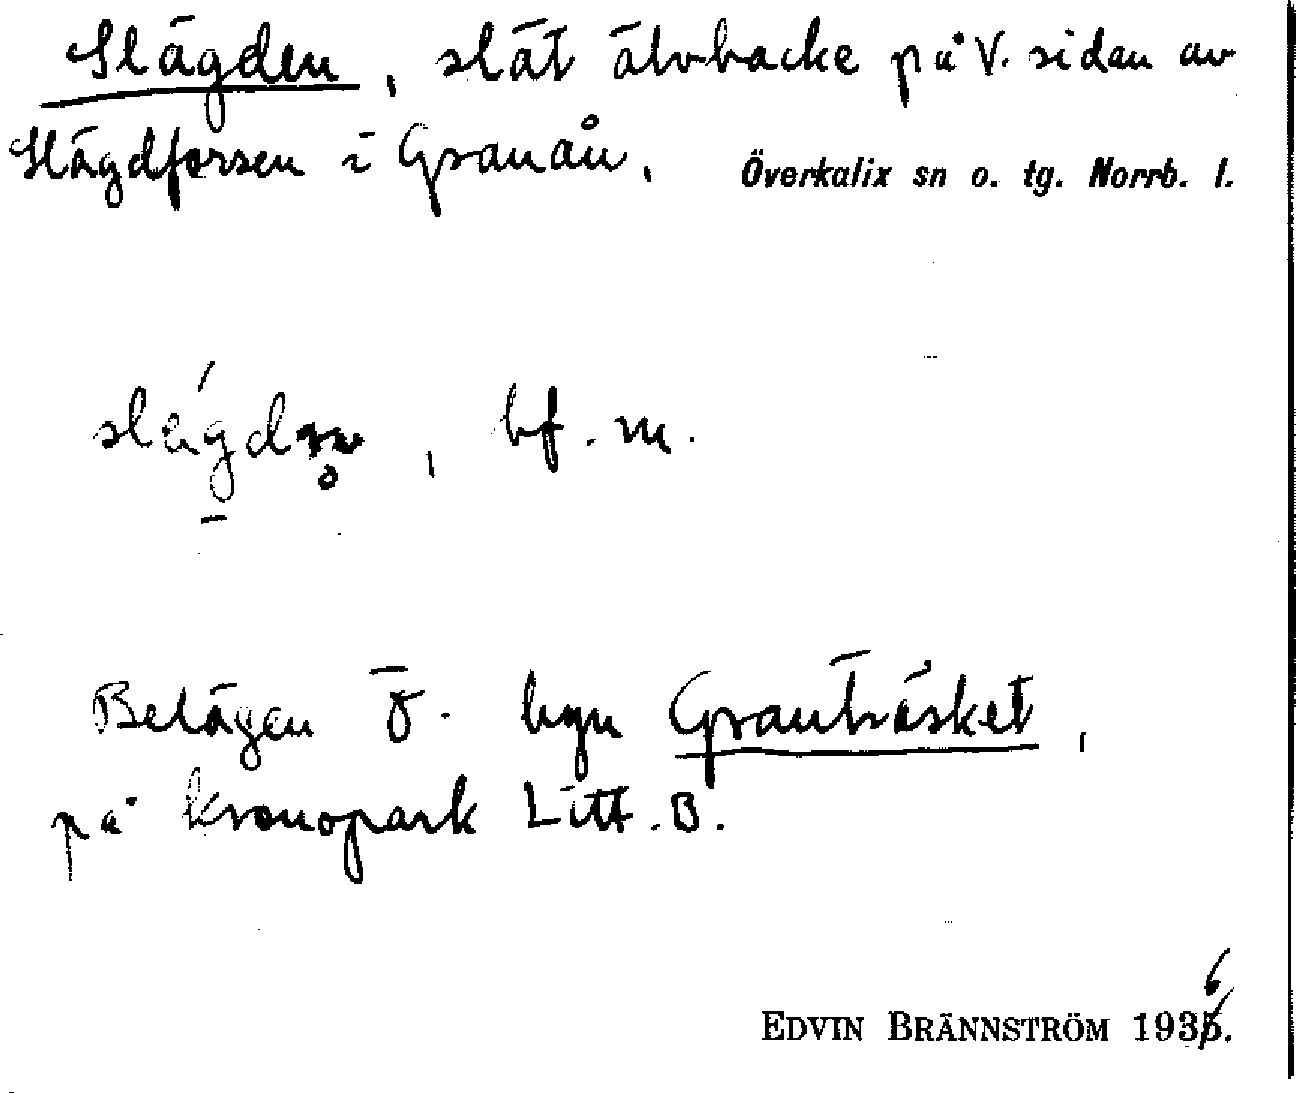 Slägden, slät älvbacke på V. sidan av
Slägdforsen i Granån. Överkalix sn o. tg. Norrb. l.
bf. m.
Belägen Ö. byn Granträsket,
på kronopark Litt. B.
EDVIN BRÄNNSTRÖM 1936.